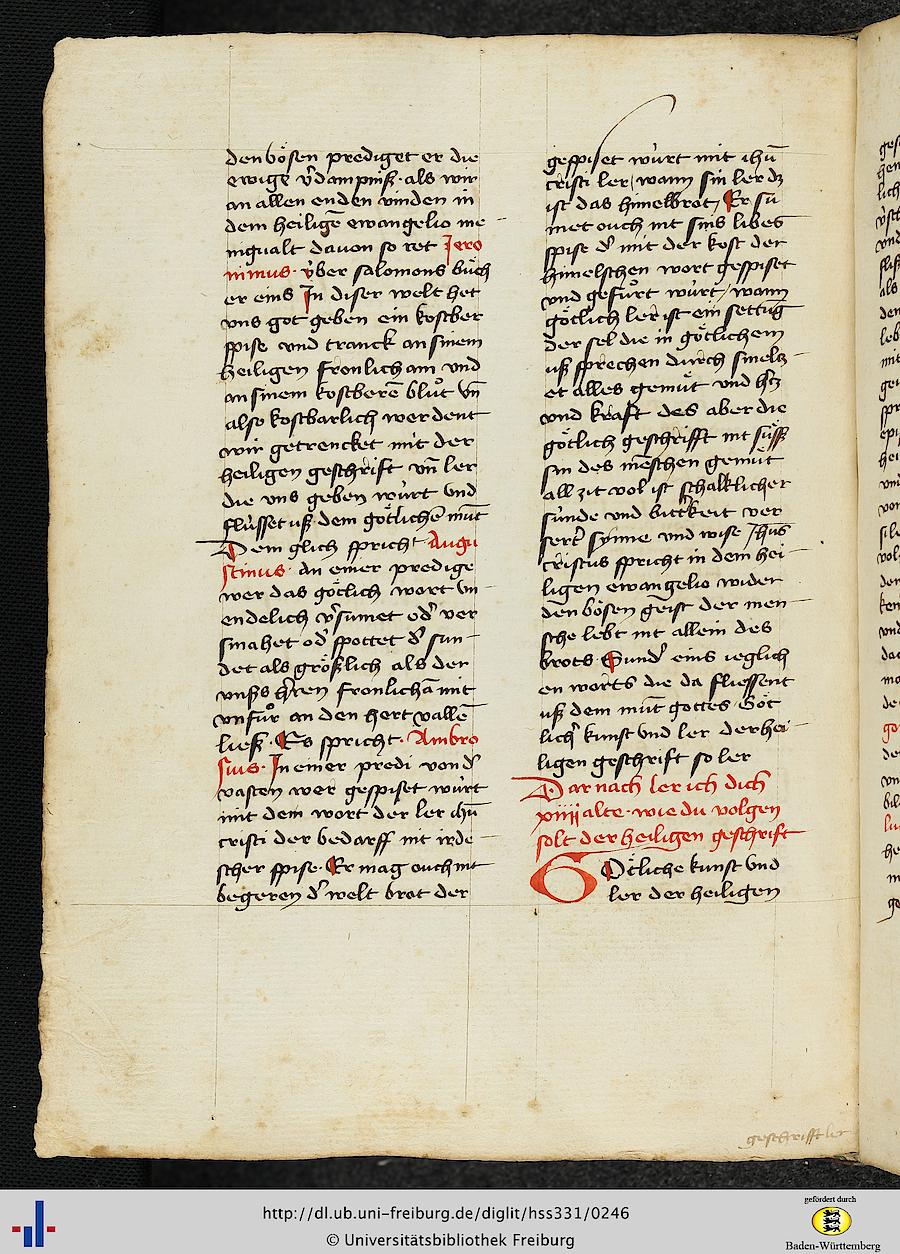 den bösen prediget er die
ewige v̉dampniß · als wir
an allen enden vinden in
dem heiligē ewangelio me-
nigualt dauon so ret Jero
nimus · v̉ber salomons bůch
er eins Jn diser welt het
vns got geben ein kostber
spise vnd tranck an sinem
heiligen fronlicham vnd
an sinem kostberē blůt vn̄
also kostbarlich werdent
wir getrencket mit der
heiligen geschrift vn̄ ler
die vns geben würt vnd
flüsset uß dem götlichē mūt
Dem glich spricht Augu
stinus · an einer predige
wer das götlich wort vn
endelich v̉sumet od̉ ver
smahet od̉ spottet d̉ sun-
det als größlich als der
vnß h̉ren fronlichā mit
vnfůr an den hert vallē
ließ · Es spricht · Ambro
sius · Jn einer predi von d̉
vasten wer gespiset würt
mit dem wort der ler ihū
cristi der bedarff nit irde-
scher spise · Er mag ouch nit
begeren d̉ welt brot der
gespiset würt mit ihū
cristi ler / wann sin ler dz
ist das himelbrot / Er su
met ouch nit sins libes
spise d̉ mit der kost der
himelschen wort gespiset
vnd gefůrt würt / wann
götlich ler ist ein settūg
der sel die in götlichem
uß sprechen durch smeltz-
et alles gemüt vnd h̉tz
vnd kraft des aber die
götlich geschrifft nit süß
sin des mēschen gemüt
all zit vol ist schalklicher
sünde vnd bitt̉keit ver
sert̉ synne vnd wise / ihūs
cristus spricht in dem hei-
ligen ewangelio wider
den bösen geist der men-
sche lebt nit allein des
brots Sund̉ eins ieglich
en worts die da fliessent
uß dem mūt gottes Göt
lich̉ kunst vnd ler der hei-
ligen geschrift so ler
Dar nach ler ich dich
xiiij alte · wie du volgen
solt der heiligen geschrift
GOtliche kunst vnd
ler der heiligen
geschrifft ler
http://dl.ub.uni-freiburg.de/diglit/hss331/0246
© Universitätsbibliothek Freiburg
gefördert durch
Baden-Württemberg